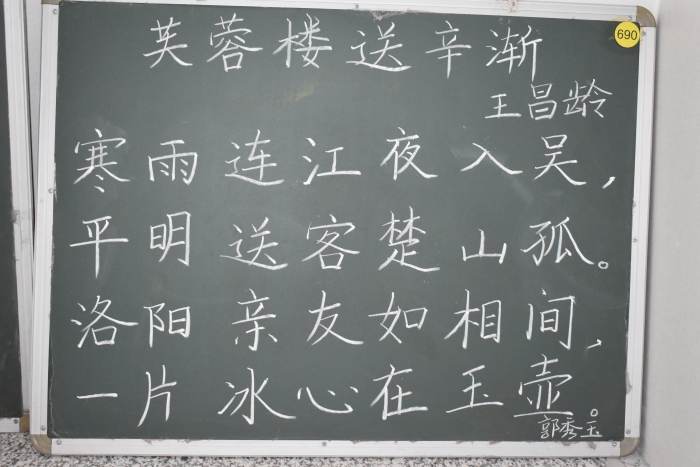 芙蓉楼送辛渐
690
王昌龄
寒雨连江夜入吴，
平明送客楚山孤。
洛阳亲友如相间，
一片冰心在玉壶。
郭秀玉